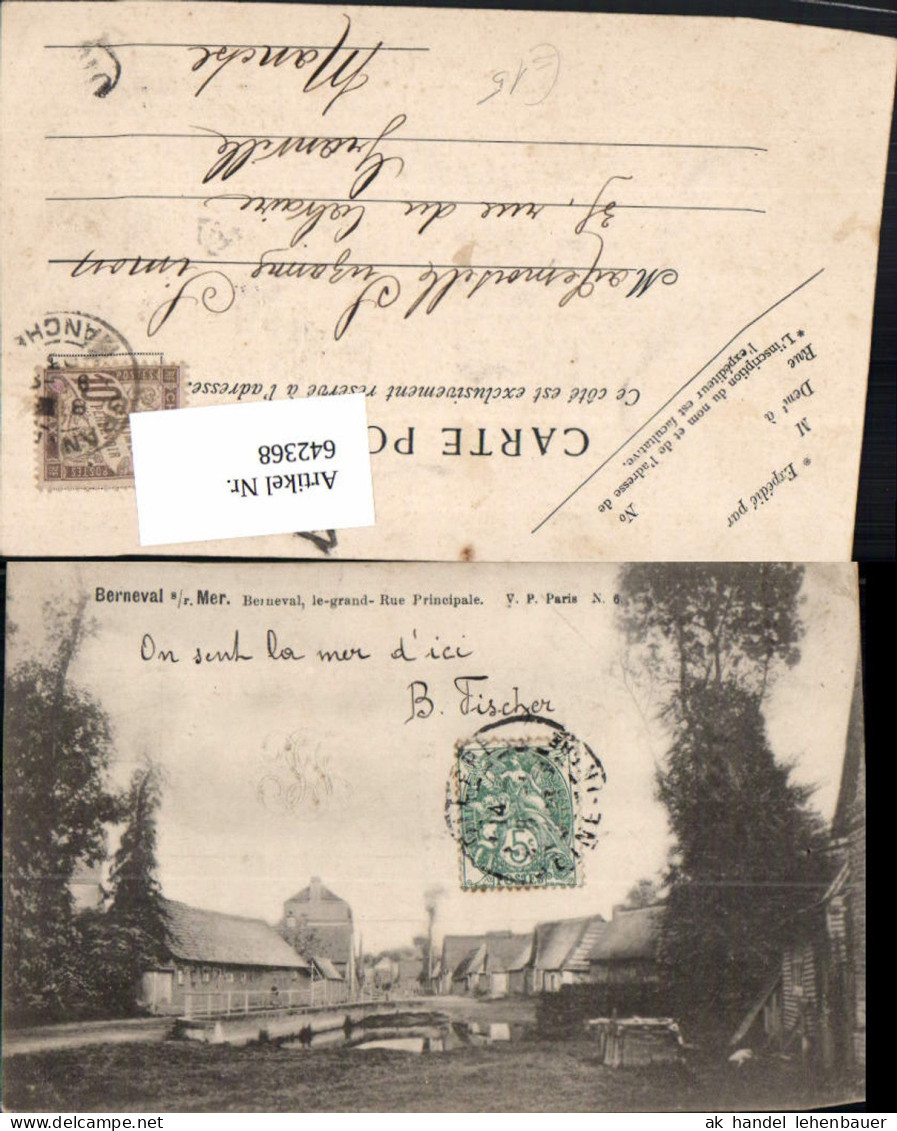 CARTE PO
Ce côté est exclusivement réservé à l'adresse.
* Expédié par
M
Demt à
Rue
No
*L'inscription du nom et de l'adresse de
l'expéditeur est facultative.
Mademoiselle Suzanne Simon
35, rue du Calvaire
Granville
Manche
E15
POSTES
10
MANCHE
Artikel Nr.
642368
Berneval s/r. Mer. Berneval, le-grand- Rue Principale. V. P. Paris N. 6
On sent la mer d'ici
B. Fischer
5c
POSTES
ak handel lehenbauer